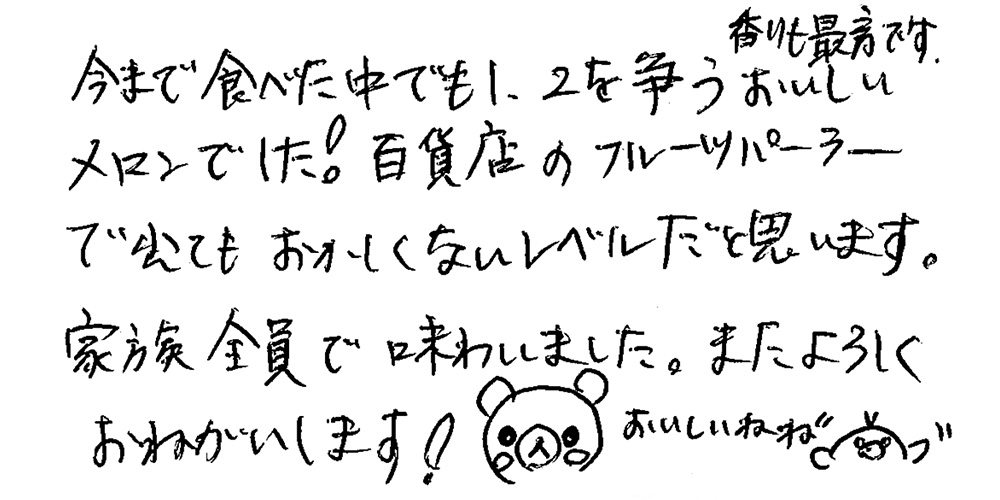 香りも最高です.
今まで食べた中でも1、2を争うおいしい
メロンでした!百貨店のフルーツパーラー
で出てもおかしくないレベルだと思います。
家族全員で味わいました。またよろしく
おねがいします!
おいしいねーね